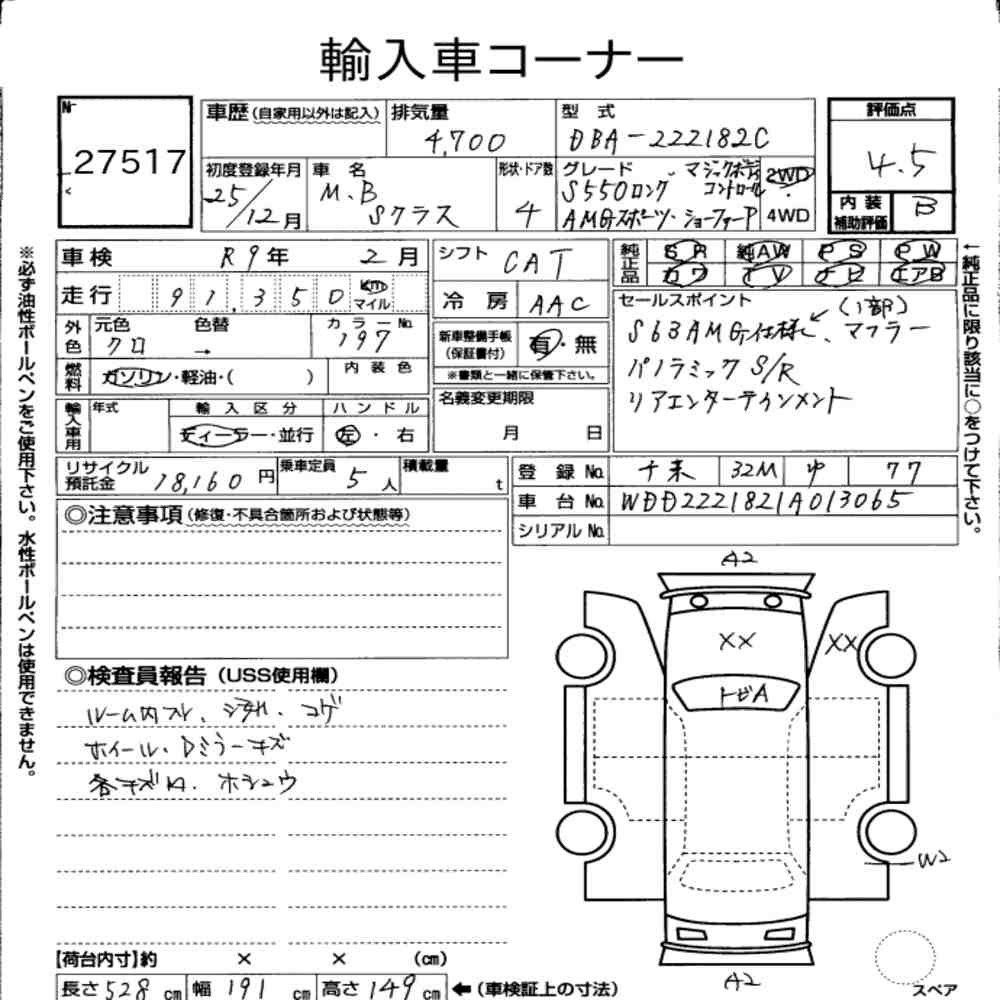 輸入車コーナー
№ 27517
車歴 (自家用以外は記入)
排気量 4,700
型式 DBA-222182C
評価点 4.5
内装補助評価 B
初度登録年月 25/12月
車名 M.B Sクラス
形状・ドア数 4
グレード マジックボディコントロール
S550ロング
AMGスポーツ・ショーファーP
2WD・4WD
車検 R9年 2月
シフト CAT
純正品 SR 純AW PS PW
カワ TV ナビ エアB
走行 91,350 km マイル
冷房 AAC
セールスポイント (1部)
S63AMG仕様、マフラー
パノラミックS/R
リアエンターテインメント
外色 元色 クロ → 色替 カラーNo. 197
新車整備手帳(保証書付) 有・無
※書類と一緒に保管下さい。
燃料 ガソリン・軽油・( ) 内装色
名義変更期限 月 日
輸入車用 年式 輸入区分 ディーラー・並行 ハンドル 左・右
リサイクル預託金 18,160円 乗車定員 5人 積載量 t
登録No. 32M ゆ 77
車台No. WDD2221821A013065
シリアルNo.
◎注意事項 (修復・不具合箇所および状態等)
◎検査員報告 (USS使用欄)
ホイール・Dミラーキズ
各キズ
A2
XX XX
トビA
W2
A2
【荷台内寸】約 × × (cm)
長さ528cm 幅191cm 高さ149cm ←(車検証上の寸法)
スペア
※必ず油性ボールペンをご使用下さい。水性ボールペンは使用できません。
↑純正品に限り該当に○をつけて下さい。